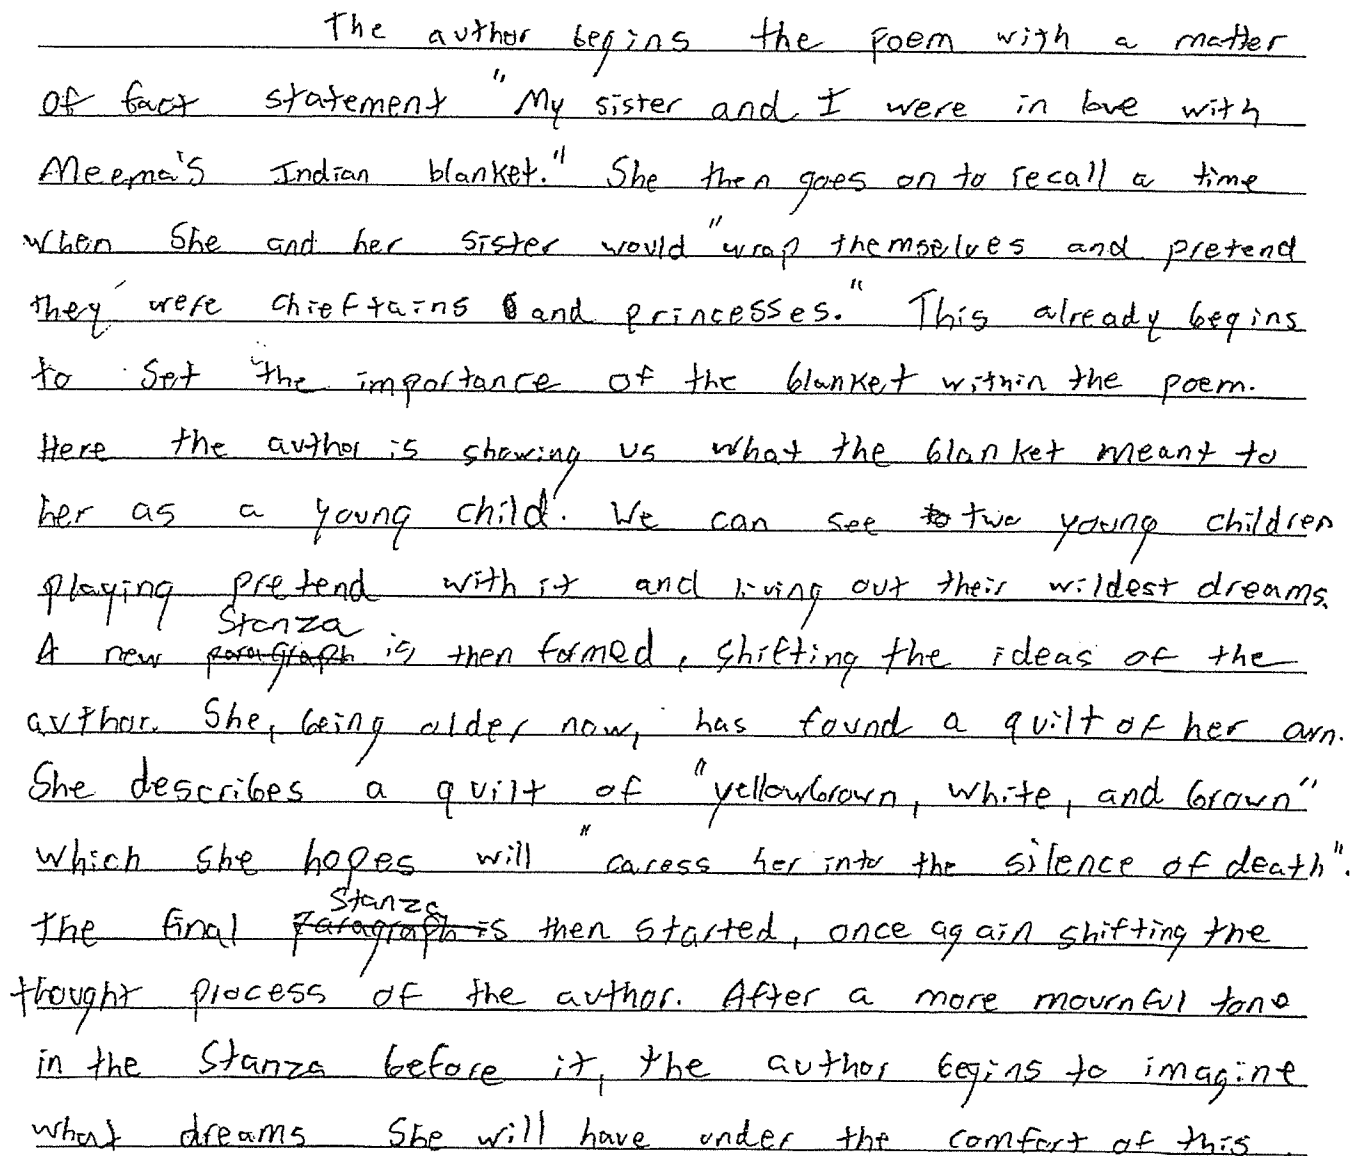 The author begins the poem with a matter
of fact statement "My sister and I were in love with
Meema's Indian blanket." She then goes on to recall a time
when She and her sister would "wrap themselves and pretend
they were chieftains and princesses." This already begins
to set the importance of the blanket within the poem.
Here the author is showing us what the blanket meant to
her as a young child. We can see to two young children
playing pretend with it and living out their wildest dreams.
Stanza
A new paragraph is then formed, shifting the ideas of the
author. She, being older now, has found a quilt of her own.
She describes a quilt of "yellowbrown, white, and brown"
which she hopes will "caress her into the silence of death".
Stanza
The final paragraph is then started, once again shifting the
thought process of the author. After a more mournful tone
in the Stanza before it, the author begins to imagine
what dreams She will have under the comfort of this